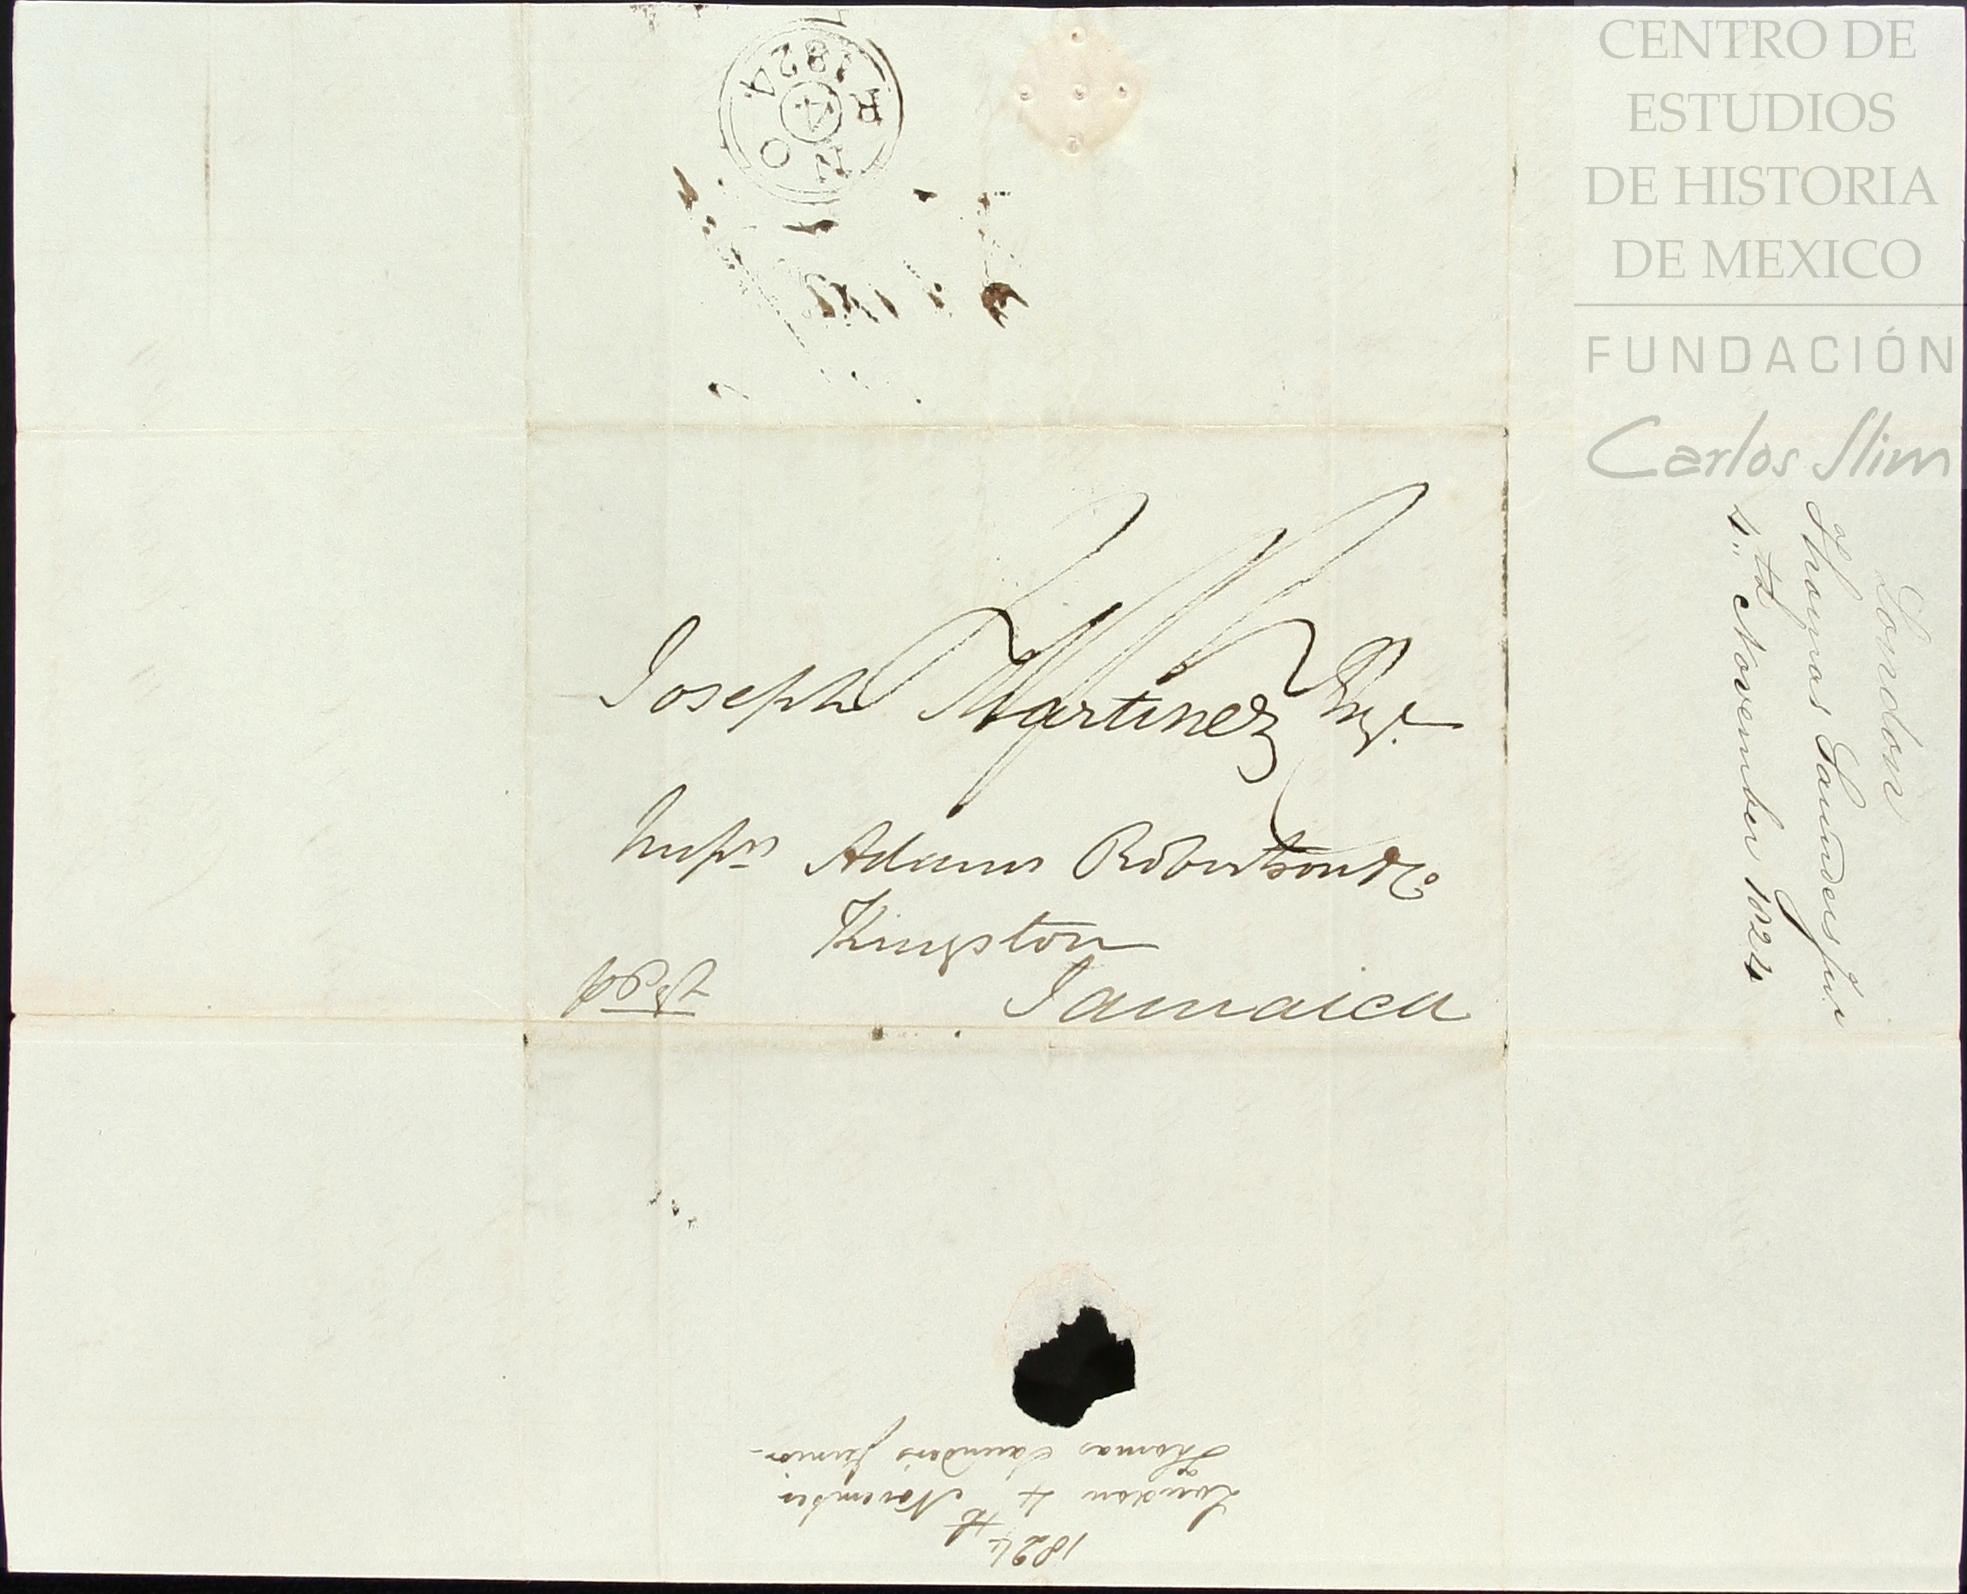 R
NO
4
1824
CENTRO DE
ESTUDIOS
DE HISTORIA
DE MEXICO
FUNDACIÓN
Carlos Slim
Joseph Martinez Esqr.
Messrs Adams Robertson & Co
Kingston
Jamaica
London
Thomas Saunders Jun
4th November 1824
1824
London 4th November
Thomas Saunders Junior